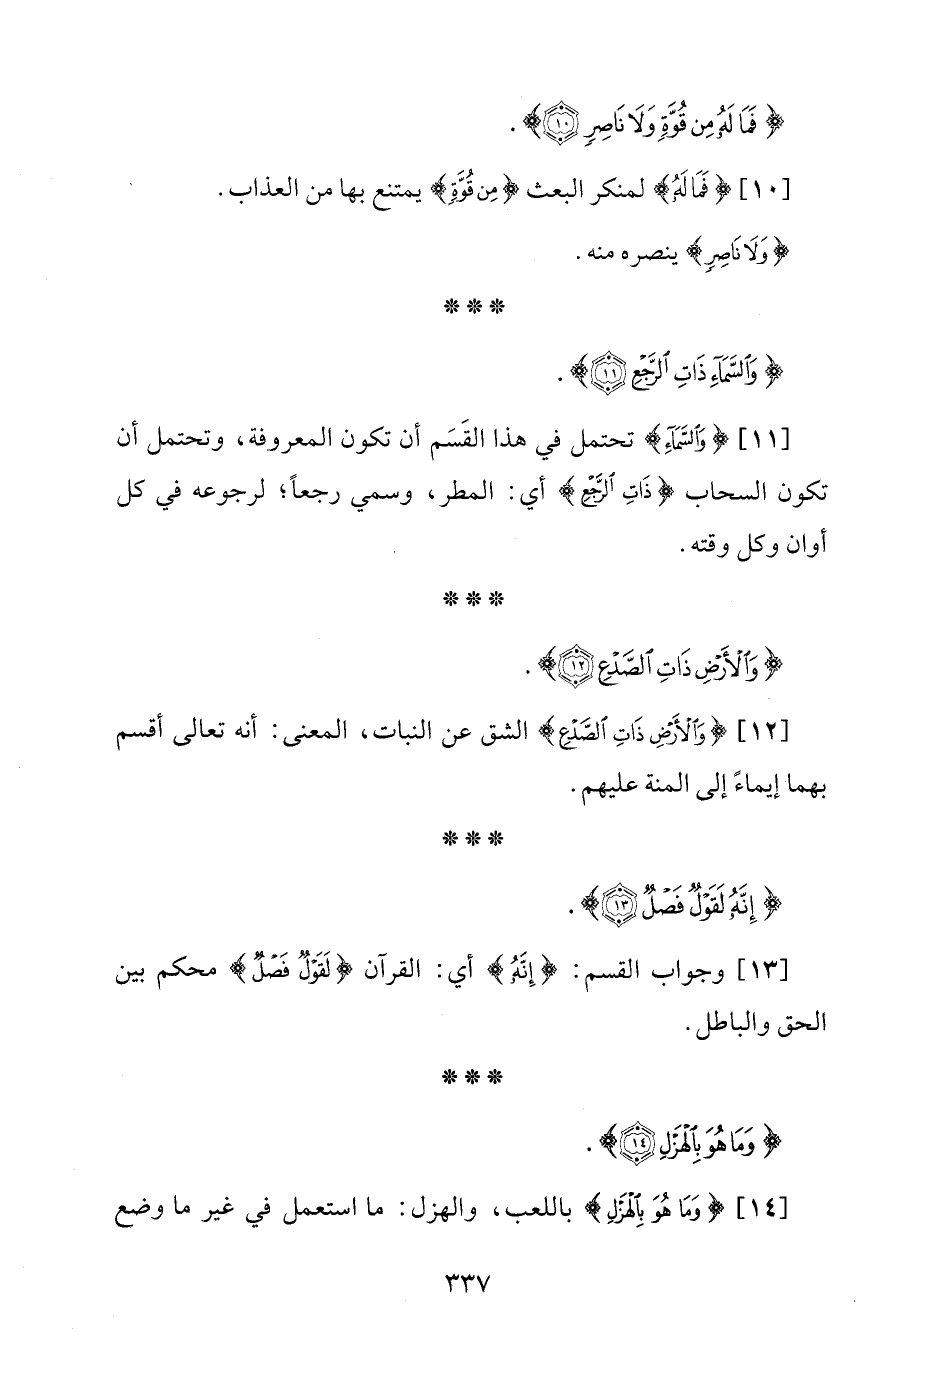 ﴿ فَمَا لَهُۥ مِن قُوَّةٍ وَلَا نَاصِرٍ ١٠ ﴾ .
[١٠] ﴿ فَمَا لَهُۥ ﴾ لمنكر البعث ﴿ مِن قُوَّةٍ ﴾ يمتنع بها من العذاب .
﴿ وَلَا نَاصِرٍ ﴾ ينصره منه .
* * *
﴿ وَٱلسَّمَآءِ ذَاتِ ٱلرَّجْعِ ١١ ﴾ .
[١١] ﴿ وَٱلسَّمَآءِ ﴾ تحتمل في هذا القَسَم أن تكون المعروفة، وتحتمل أن
تكون السحاب ﴿ ذَاتِ ٱلرَّجْعِ ﴾ أي: المطر، وسمي رجعاً؛ لرجوعه في كل
أوان وكل وقته .
* * *
﴿ وَٱلْأَرْضِ ذَاتِ ٱلصَّدْعِ ١٢ ﴾ .
[١٢] ﴿ وَٱلْأَرْضِ ذَاتِ ٱلصَّدْعِ ﴾ الشق عن النبات، المعنى: أنه تعالى أقسم
بهما إيماءً إلى المنة عليهم .
* * *
﴿ إِنَّهُۥ لَقَوْلٌ فَصْلٌ ١٣ ﴾ .
[١٣] وجواب القسم: ﴿ إِنَّهُۥ ﴾ أي: القرآن ﴿ لَقَوْلٌ فَصْلٌ ﴾ محكم بين
الحق والباطل .
* * *
﴿ وَمَا هُوَ بِٱلْهَزْلِ ١٤ ﴾ .
[١٤] ﴿ وَمَا هُوَ بِٱلْهَزْلِ ﴾ باللعب، والهزل: ما استعمل في غير ما وضع
٣٣٧